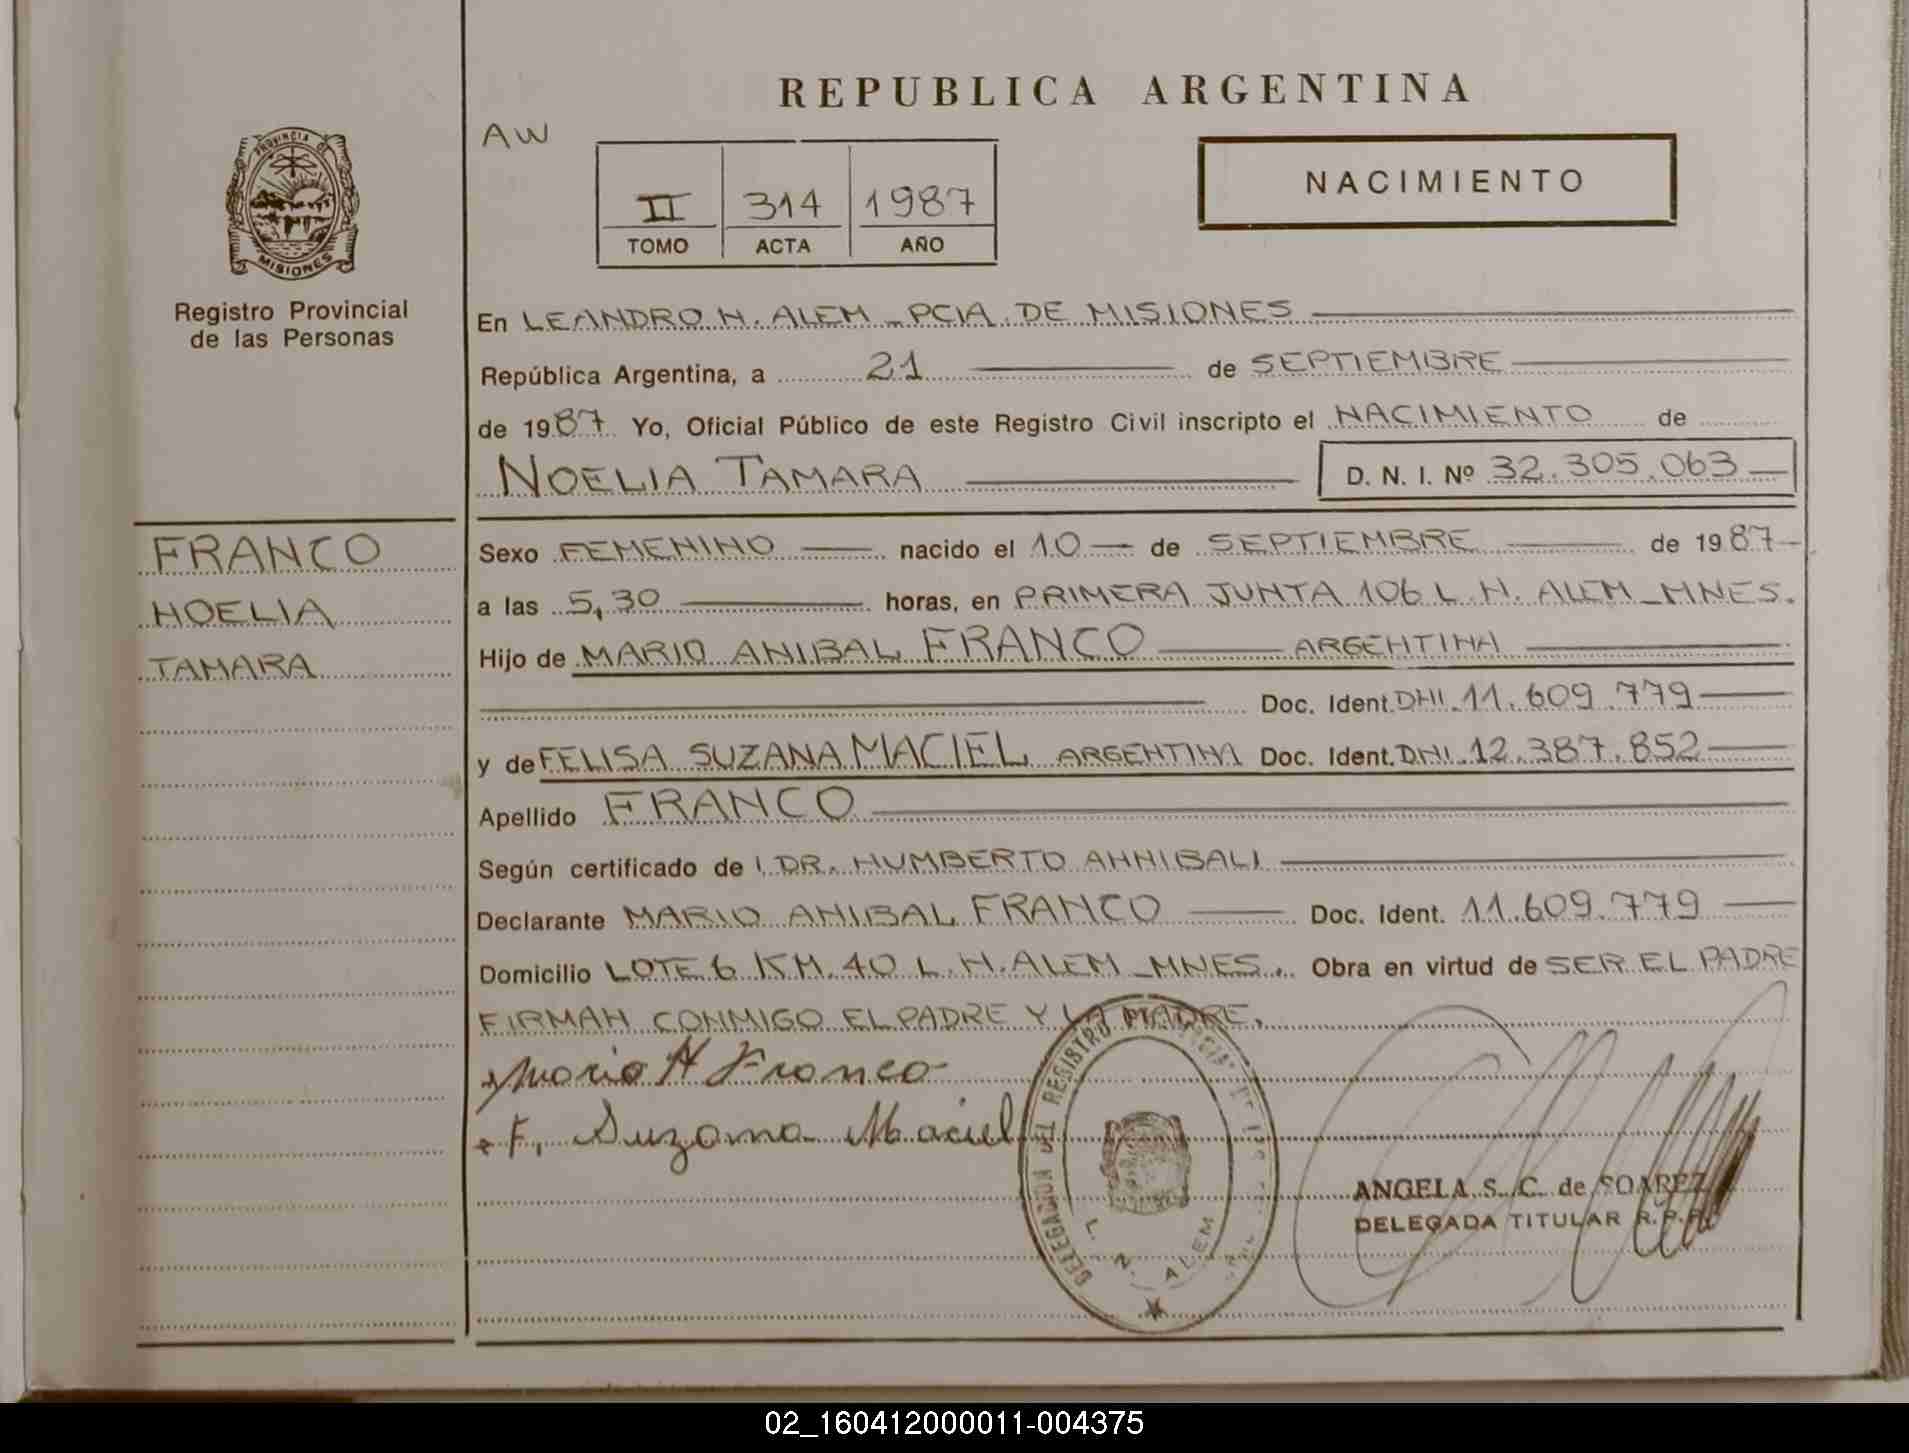 REPUBLICA ARGENTINA
AW
II 314 1987
TOMO ACTA AÑO
NACIMIENTO
PROVINCIA DE
MISIONES
Registro Provincial
de las Personas
FRANCO
NOELIA
TAMARA
En LEANDRO N. ALEM - PCIA. DE MISIONES
República Argentina, a 21 de SEPTIEMBRE
de 1987 Yo, Oficial Público de este Registro Civil inscripto el NACIMIENTO de
NOELIA TAMARA D. N. I. Nº 32.305.063
Sexo FEMENINO nacido el 10 de SEPTIEMBRE de 1987
a las 5,30 horas, en PRIMERA JUNTA 106 L. N. ALEM - MNES.
Hijo de MARIO ANIBAL FRANCO ARGENTINA
Doc. Ident. DNI. 11.609.779
y de FELISA SUZANA MACIEL ARGENTINA Doc. Ident. DNI. 12.387.852
Apellido FRANCO
Según certificado de DR. HUMBERTO ANNIBALI
Declarante MARIO ANIBAL FRANCO Doc. Ident. 11.609.779
Domicilio LOTE 6 KM. 40 L. N. ALEM - MNES. Obra en virtud de SER EL PADRE
FIRMAN CONMIGO EL PADRE Y LA MADRE.
Mario A Franco
F. Suzana Maciel
DELEGACION DEL REGISTRO
L. N. ALEM
ANGELA S. C. de SOAREZ
DELEGADA TITULAR R.P.P.
02_160412000011-004375